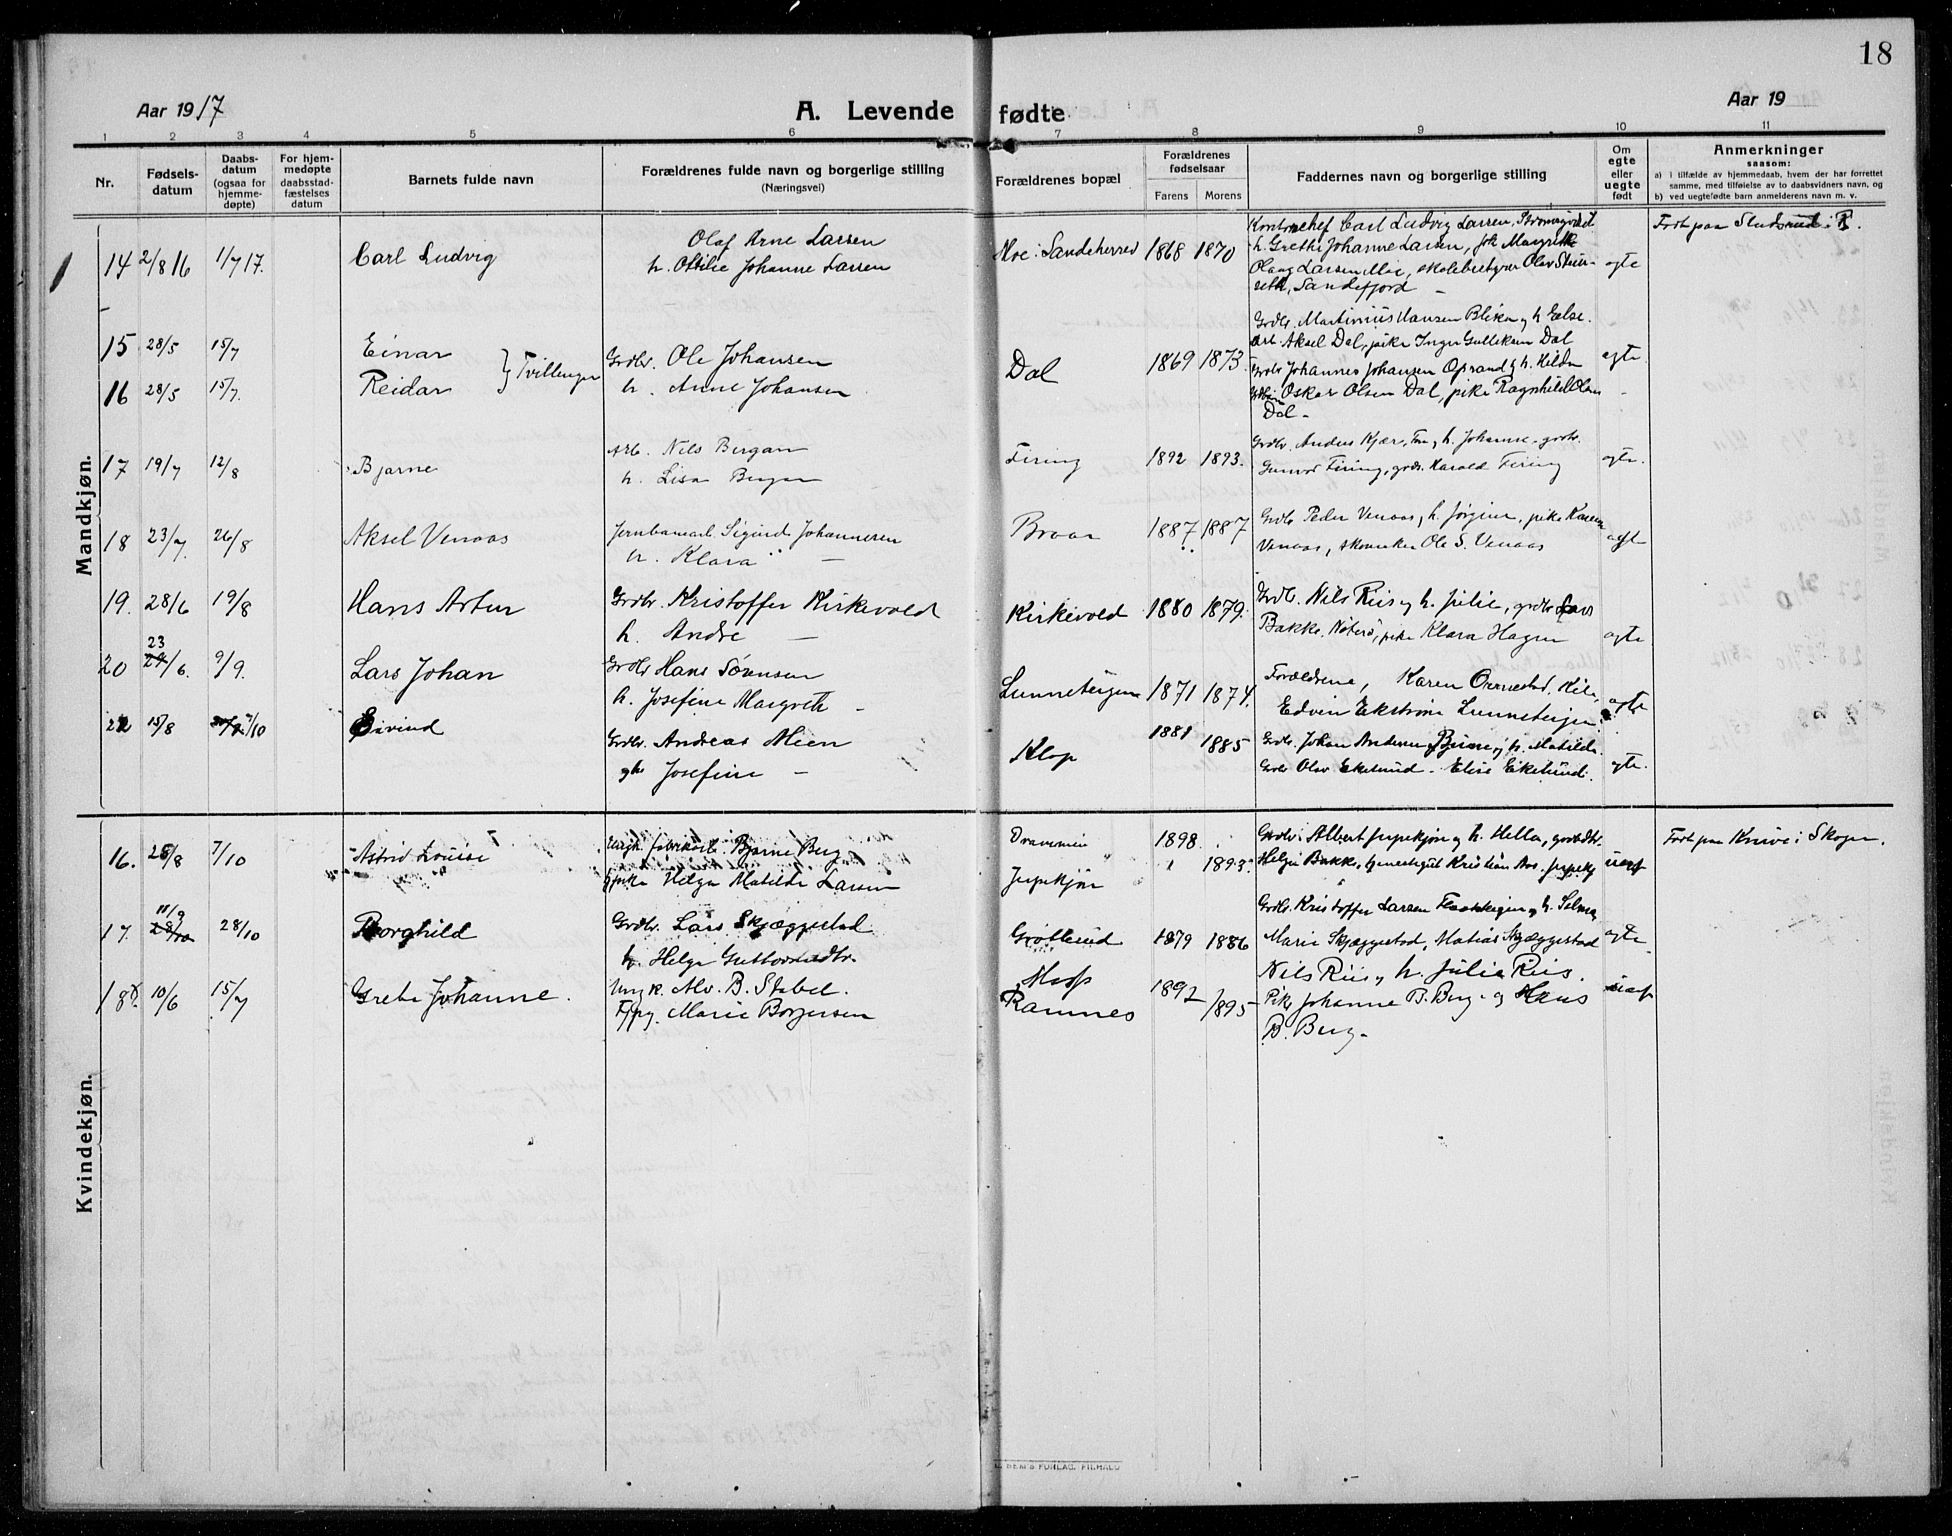 18
Aar 1917
A. Levende fødte
Aar 19
1 2 3 4 5 6 7 8 9 10 11
Nr.
Fødsels-
datum
Daabs-
datum
(ogsaa for
hjemme-
døpte)
For hjem-
medøpte
daabsstad-
fæstelses
datum
Barnets fulde navn
Forældrenes fulde navn og borgerlige stilling
(Næringsvei)
Forældrenes bopæl
Forældrenes
fødselsaar
Farens Morens
Faddernes navn og borgerlige stilling
Om
egte
eller
uegte
født
Anmerkninger
saasom:
a) i tilfælde av hjemmedaab, hvem der har forrettet
samme, med tilføielse av to daabsvidners navn, og
b) ved uegtefødte barn anmelderens navn m. v.
Mandkjøn.
14 2/8 16 1/7 17. Carl Ludvig
Olaf Arne Larsen
h. Ottilie Johanne Larsen
Moe i Sandeherred 1868 1870
Carl Ludvig Larsen,
h. Grethe Johanne Larsen, frk Margrethe
Olaug Larsen Moe, skolebestyrer Olav
Sandefjord
egte
Født paa
15 28/5 15/7 Einar
16 28/5 15/7. Reidar
Tvillinger
Grdbr. Ole Johansen
h. Anne Johansen
Dal 1869 1873.
Grdbr. Martinius Hansen Bleka og h. Else.
arb. Aksel Dal, pike Inger Gulleksen Dal
Grdbr Johannes Johansen Oprand og h. Hilda
Oskar Olsen Dal, pike Ragnhild Olsen
Dal -
egte
17 19/7 12/8 Bjarne
Arb. Nils Bergan
h. Lisa Bergan
Firing 1892 1893.
Grdbr. Anders Kjær, og h. Johanne, grdbr.
Gunvor Firing, grdb. Harald Firing
egte.
18 23/7. 26/8 Aksel Venaas
Jernbanearb. Sigurd Johannesen
h. Klara "
Braar 1887 1887
Grdbr Peder Venaas, h. Jørgine, pike Karen
Venaas, skomaker Ole S. Venaas
egte
19. 28/6 19/8 Hans Artur
Grdbr. Kristoffer Kirkevold
h. Andre -
Kirkevold 1880 1879.
Grdb. Nils Riis og h. Julie, grdbr Lars
Bakke, Nøterø, pike Klara Hagen
egte
20 23/6. 9/9. Lars Johan
Grdbr Hans Sørensen
h. Josefine Margrethe -
Lunneteigen 1871 1874.
Forældrene, Karen
Edvin Ekstrøm Lunneteigen.
egte
22 15/8 7/10 Eivind
Grdbr. Andreas Moen
og h. Josefine -
Klop 1881 1885
Grdb. Johan Andersen og h. Matilde.
Grdb Olav Ekelund - Elise Ekelund.
egte.
Kvindekjøn.
16. 25/8 7/10 Astrid Louise
Ungk. fabrikarb. Bjarne Berg
og pike Helga Matilde Larsen
Drammen 1898.
Jerpekjøn 1893.
Grdbr. Albert Jerpekjøn og h. Hella,
Helga Bakke, Kristian
uegt
Født paa Knive i Skoger.
17. 11/9 28/10 Borghild
Grdbr. Lars Skjæggestad
h. Helga
Grøtterud 1879 1886
Grdb. Kristoffer Larsen og h. Selma
Marie Skjæggestad, Matias Skjæggestad
egte
18. 10/6 15/7 Grete Johanne.
Ungk. Alv. B. Stabel.
Marie Borgersen
Ramnes 1892 1895
Nils Riis og h. Julia Riis.
Pike Johanne B. Berg og Hans
B. Berg.
uegt
SEM'S FORLAG, FR.HALD